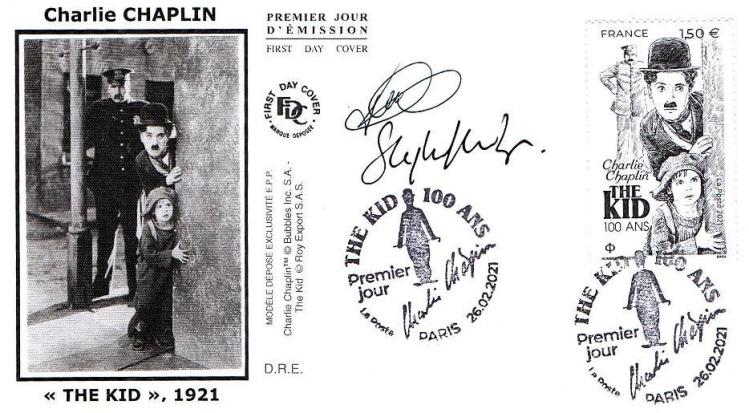 Charlie CHAPLIN
« THE KID », 1921
PREMIER JOUR
D'ÉMISSION
FIRST DAY COVER
FIRST DAY COVER
FDC
MARQUE DÉPOSÉE
MODÈLE DÉPOSÉ EXCLUSIVITÉ E.P.P.
Charlie Chaplin™ © Bubbles Inc. S.A. -
The Kid © Roy Export S.A.S.
D.R.E.
THE KID 100 ANS
Premier
jour
La Poste
Charlie Chaplin
PARIS 26.02.2021
FRANCE 1,50 €
Charlie
Chaplin
THE
KID
100 ANS
La Poste 2021
THE KID 100 ANS
Premier
jour
La Poste
Charlie Chaplin
PARIS 26.02.2021